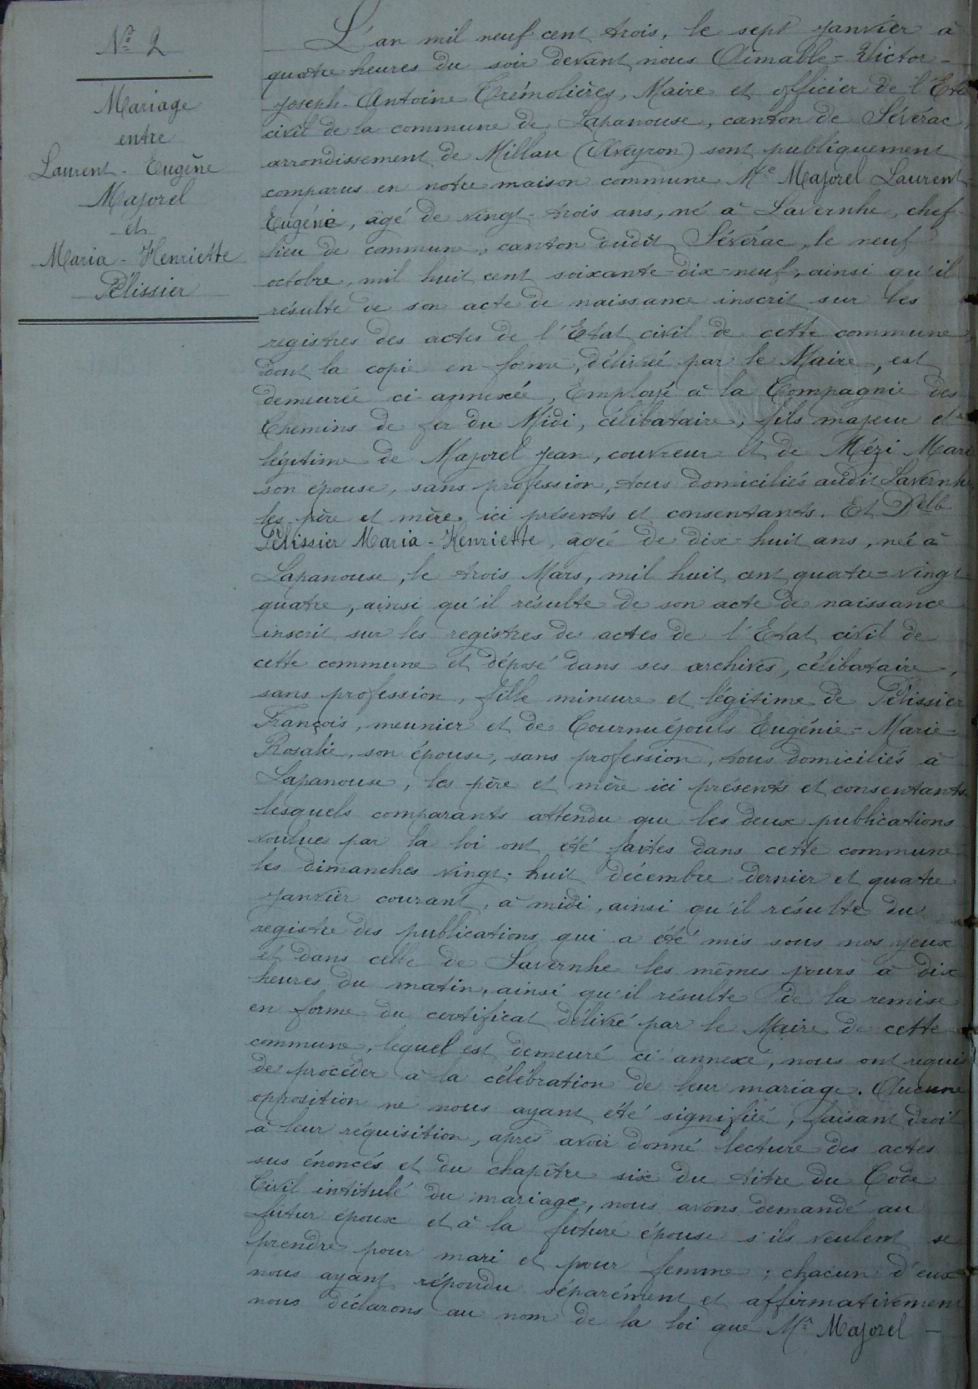 N° 2
Mariage
entre
Laurent-Eugène
Majorel
et
Maria-Henriette
Pélissier
L'an mil neuf cent trois, le sept Janvier à
quatre heures du soir devant nous Aimable=Victor-
Joseph-Antoine Crémolières, Maire et officier de l'Etat
civil de la commune de Lapanouse, canton de Sévérac,
arrondissement de Millau (Aveyron) sont publiquement
comparus en notre maison commune Mr Majorel Laurent-
Eugène, agé de vingt-trois ans, né à Lavernhe, chef-
lieu de commun, canton dudit Sévérac, le neuf
octobre, mil huit cent soixante-dix-neuf, ainsi qu'il
résulte de son acte de naissance inscrit sur les
registres des actes de l'Etat civil de cette commune,
dont la copie en forme, délivré par le Maire, est
demeurée ci-annexée, Employé à la Compagnie des
Chemins de fer du Midi, célibataire, fils majeur et
légitime de Majorel Jean, couvreur et de Mézi Marie
son épouse, sans profession, tous domiciliés audit Lavernhe
les père et mère, ici présents et consentants. Et Delle
Pélissier Maria-Henriette, agée de dix-huit ans, né à
Lapanouse, le trois Mars, mil huit cent quatre=vingt
quatre, ainsi qu'il résulte de son acte de naissance
inscrit sur les registres des actes de l'Etat civil de
cette commune et déposé dans ses archives, célibataire,
sans profession, fille mineure et légitime de Pélissier
François, meunier et de Cournuéjouls Eugénie=Marie=
Rosalie, son épouse, sans profession, tous domiciliés à
Lapanouse, les père et mère ici présents et consentants
lesquels comparants attendu que les deux publications
voulues par la loi ont été faites dans cette commune
les dimanches vingt-huit décembre dernier et quatre
Janvier courant, à midi, ainsi qu'il résulte du
registre des publications qui a été mis sous nos yeux
et dans celle de Lavernhe les mêmes jours à dix
heures du matin, ainsi qu'il résulte de la remise
en forme du certificat délivré par le Maire de cette
commune, lequel est demeuré ci annexé, nous ont requis
de procéder à la célébration de leur mariage. Aucune
opposition ne nous ayant été signifiée, faisant droit
à leur réquisition, après avoir donné lecture des actes
sus énoncés et du chapître six du titre du Code
Civil intitulé du mariage, nous avons demandé au
futur époux et à la future épouse s'ils veulent se
prendre pour mari et pour femme; chacun d'eux
nous ayant répondu séparément et affirmativement
nous déclarons au nom de la loi que Mr Majorel -